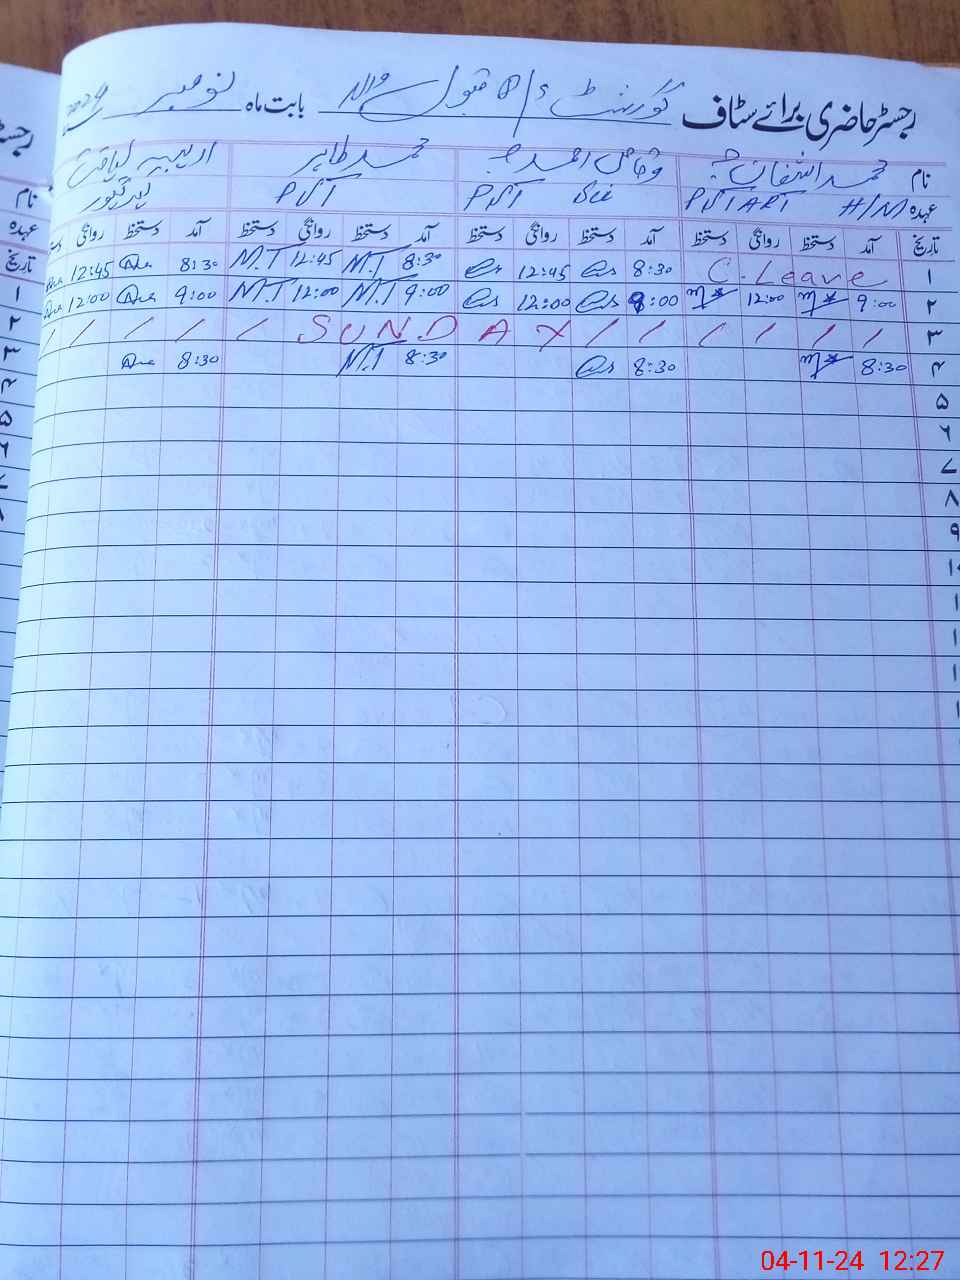 رجسٹر حاضری برائے سٹاف گورنمنٹ P/S قبول والہ بابت ماہ نومبر 2024
نام محمد اشفاق وقاص احمد محمد طاہر ادیبہ لیاقت
عہدہ H/M PST ART Sci PST PST
تاریخ آمد دستخط روانگی دستخط آمد دستخط روانگی دستخط آمد دستخط روانگی دستخط آمد دستخط روانگی
۱ C. Leave 8:30 12:45 8:30 M.T 12:45 M.T 8:30 12:45
۲ 9:00 12:00 9:00 12:00 9:00 M.T 12:00 M.T 9:00 12:00
۳ / / / / / / SUNDAY / / / / /
۴ 8:30 8:30 8:30 M.T 8:30
۵
۶
۷
۸
۹
04-11-24 12:27